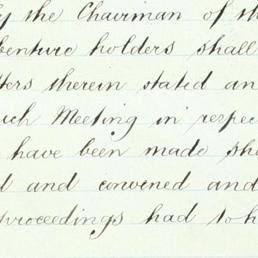 the Chairman of th
benture holders shall
tters therein stated an
uch Meeting in respec
have been made sh
d and convened and
proceedings had to h